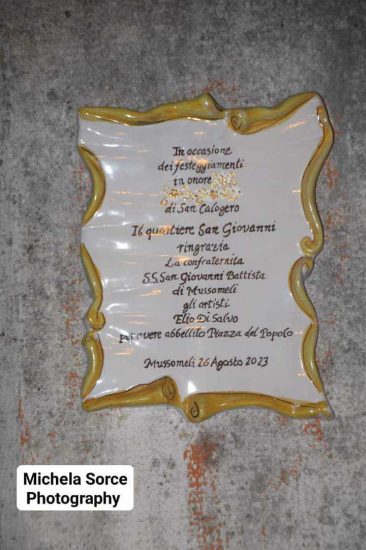 In occasione
dei festeggiamenti
in onore
di San Calogero
Il quartiere San Giovanni
ringrazia
La confraternita
S.S. San Giovanni Battista
di Mussomeli
gli artisti
Elio Di Salvo
per avere abbellito Piazza del Popolo
Mussomeli 26 Agosto 2023
Michela Sorce
Photography